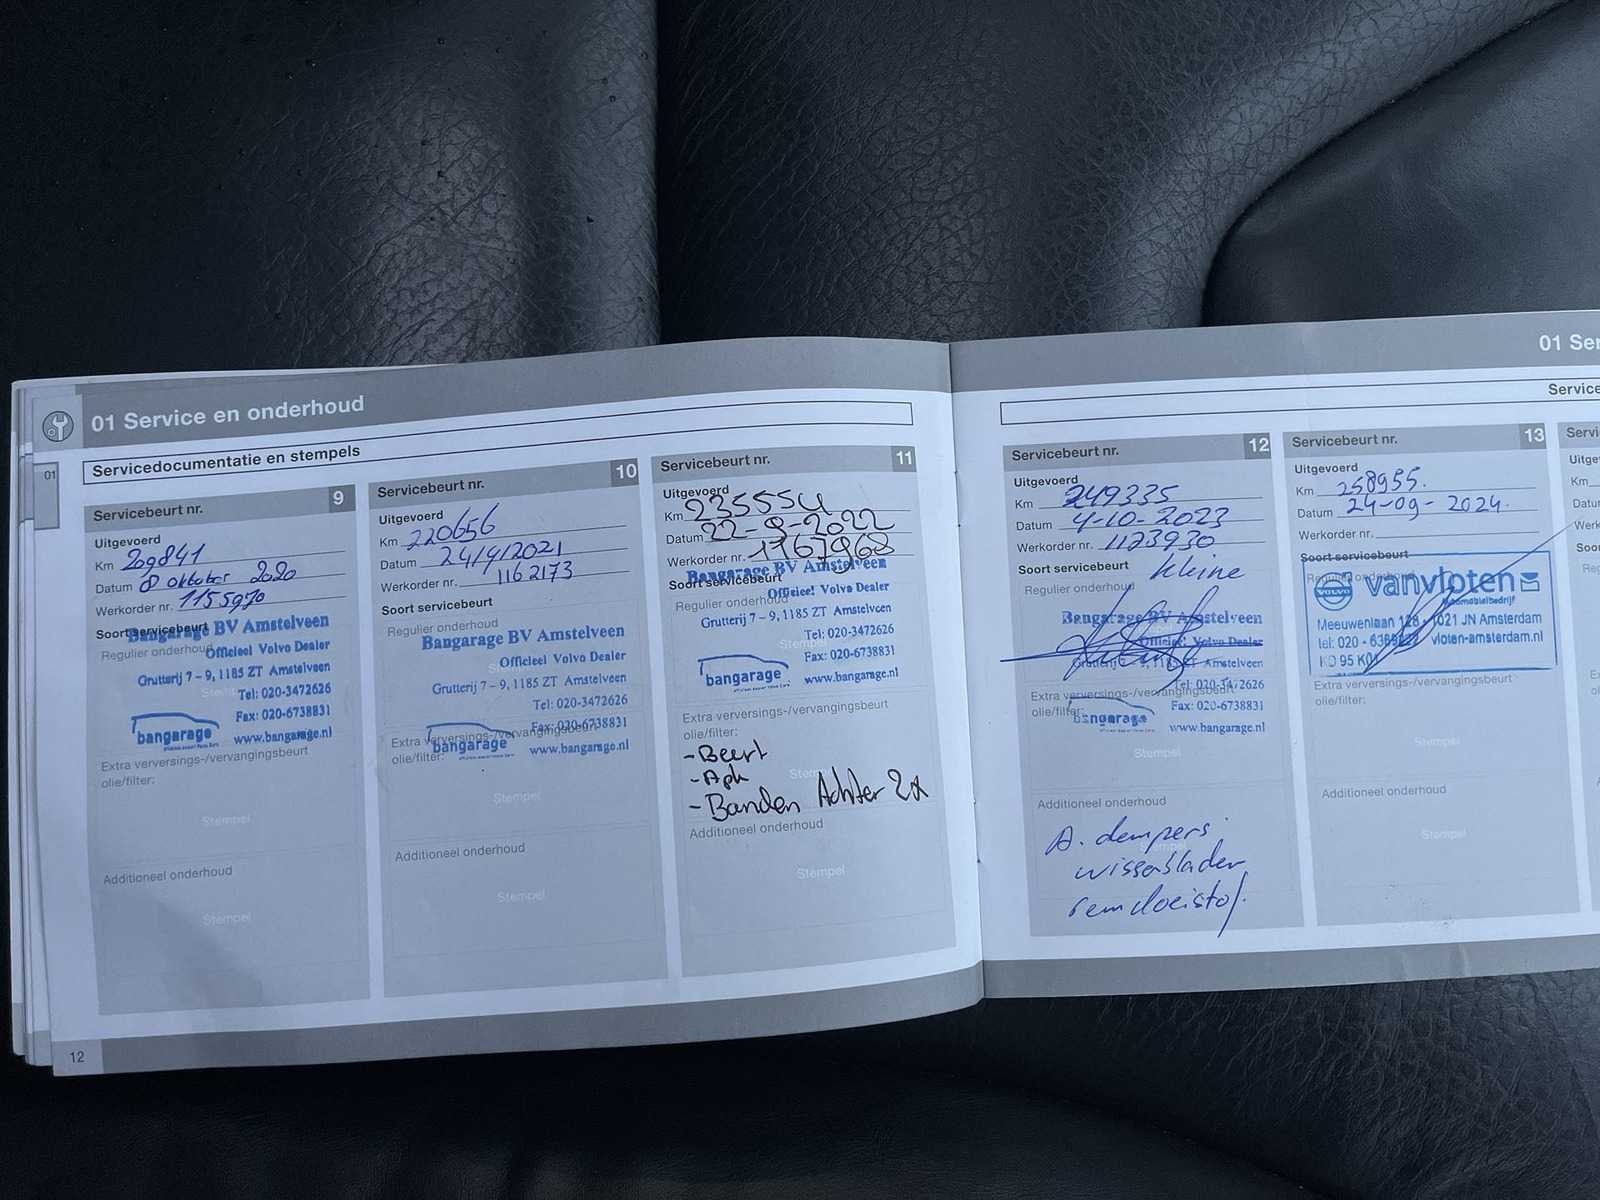 01 Service en onderhoud
01
Servicedocumentatie en stempels
Servicebeurt nr. 9
Uitgevoerd
Km 209841
Datum 8 oktober 2020
Werkorder nr. 1155970
Soort servicebeurt
Bangarage BV Amstelveen
Regulier onderhoud
Officieel Volvo Dealer
Grutterij 7 – 9, 1185 ZT Amstelveen
Tel: 020-3472626
Fax: 020-6738831
bangarage
www.bangarage.nl
Extra verversings-/vervangingsbeurt
olie/filter:
Stempel
Additioneel onderhoud
Stempel
12
Servicebeurt nr. 10
Uitgevoerd
Km 220656
Datum 24/4/2021
Werkorder nr. 1162173
Soort servicebeurt
Regulier onderhoud
Bangarage BV Amstelveen
Officieel Volvo Dealer
Grutterij 7 – 9, 1185 ZT Amstelveen
Tel: 020-3472626
Fax: 020-6738831
Extra verversings-/vervangingsbeurt
bangarage
www.bangarage.nl
olie/filter:
Stempel
Additioneel onderhoud
Stempel
Servicebeurt nr. 11
Uitgevoerd
Km 235554
Datum 22-9-2022
Werkorder nr. 1167968
Bangarage BV Amstelveen
Soort servicebeurt
Officieel Volvo Dealer
Regulier onderhoud
Grutterij 7 – 9, 1185 ZT Amstelveen
Tel: 020-3472626
Fax: 020-6738831
bangarage
www.bangarage.nl
Extra verversings-/vervangingsbeurt
olie/filter:
- Beurt
- Apk
- Banden Achter 2x
Additioneel onderhoud
Stempel
01 Ser
Service
Servicebeurt nr. 12
Uitgevoerd
Km 249335
Datum 4-10-2023
Werkorder nr. 1173930
Soort servicebeurt Kleine
Regulier onderhoud
Bangarage BV Amstelveen
Officieel Volvo Dealer
Grutterij 7 – 9, 1185 ZT Amstelveen
Tel: 020-3472626
Extra verversings-/vervangingsbeurt
olie/filter:
Fax: 020-6738831
bangarage
www.bangarage.nl
Stempel
Additioneel onderhoud
A. dempers
wisserbladen
remvloeistof.
Servicebeurt nr. 13
Uitgevoerd
Km 258955.
Datum 24-09-2024.
Werkorder nr.
Soort servicebeurt
Regulier onderhoud
VOLVO
vanvloten
automobielbedrijf
Meeuwenlaan 128 - 1021 JN Amsterdam
tel: 020 -
vloten-amsterdam.nl
KD 95 K01
Extra verversings-/vervangingsbeurt
olie/filter:
Stempel
Additioneel onderhoud
Stempel
Servi
Uitge
Km
Datu
Werk
Soor